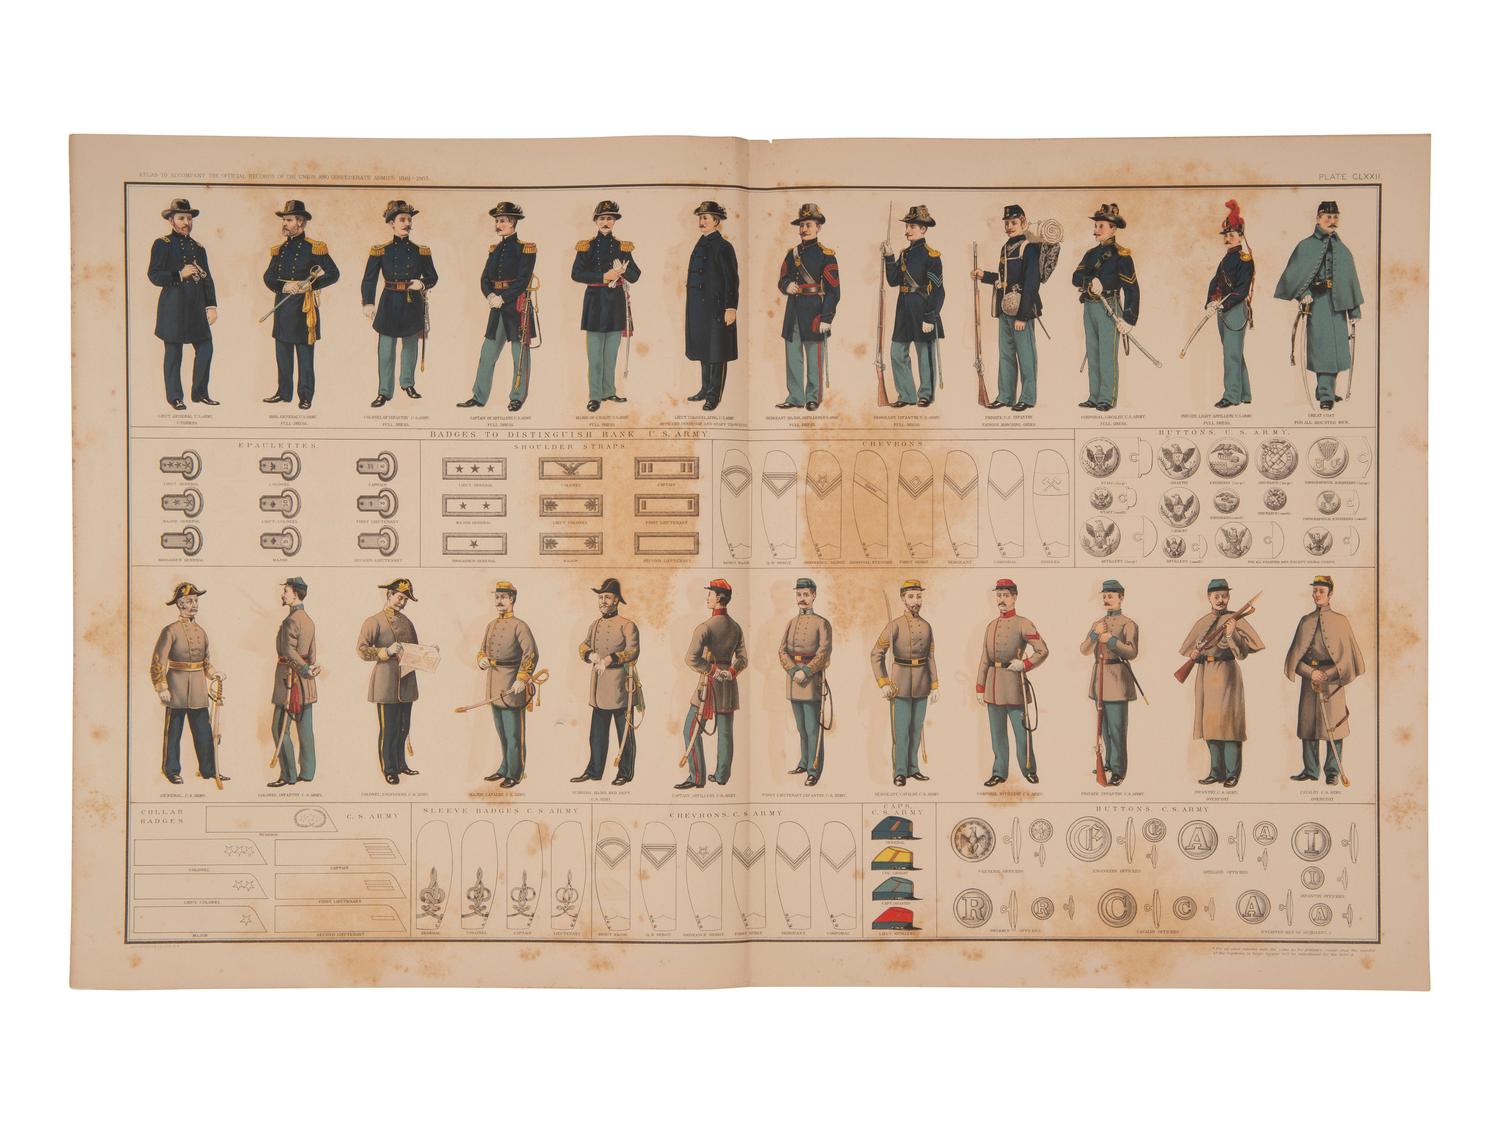 ATLAS TO ACCOMPANY THE OFFICIAL RECORDS OF THE UNION AND CONFEDERATE ARMIES 1861-1865.
PLATE CLXXII.
LIEUT. GENERAL U.S. ARMY.
BRIG. GENERAL U.S. ARMY
FULL DRESS.
COLONEL OF INFANTRY U.S. ARMY.
FULL DRESS.
CAPTAIN OF ARTILLERY, U.S. ARMY.
FULL DRESS.
MAJOR OF CAVALRY U.S. ARMY
FULL DRESS.
SERGEANT MAJOR, ARTILLERY U.S. ARMY.
FULL DRESS.
SERGEANT, INFANTRY, U.S. ARMY.
FULL DRESS.
PRIVATE, U.S. INFANTRY.
FATIGUE MARCHING ORDER.
CORPORAL, CAVALRY, U.S. ARMY.
FULL DRESS.
PRIVATE LIGHT ARTILLERY, U.S. ARMY.
FULL DRESS.
GREAT COAT
FOR ALL MOUNTED MEN.
BADGES TO DISTINGUISH RANK U.S. ARMY.
EPAULETTES.
LIEUT. GENERAL
COLONEL
CAPTAIN
MAJOR GENERAL
LIEUT. COLONEL
FIRST LIEUTENANT
BRIGADIER GENERAL
MAJOR
SECOND LIEUTENANT
SHOULDER STRAPS.
LIEUT. GENERAL
COLONEL
CAPTAIN
MAJOR GENERAL
LIEUT. COLONEL
FIRST LIEUTENANT
BRIGADIER GENERAL
MAJOR
SECOND LIEUTENANT
CHEVRONS.
SERGT. MAJOR
Q.M. SERGT.
ORDNANCE SERGT.
HOSPITAL STEWARD
FIRST SERGT.
SERGEANT
CORPORAL
PIONEER
BUTTONS, U.S. ARMY.
STAFF (large)
INFANTRY
ENGINEERS (large)
ORDNANCE (large)
TOPOGRAPHICAL ENGINEERS (large)
STAFF (small)
CAVALRY
ENGINEERS (small)
ORDNANCE (small)
TOPOGRAPHICAL ENGINEERS (small)
ARTILLERY (large)
ARTILLERY (small)
FOR ALL ENLISTED MEN EXCEPT SIGNAL CORPS.
GENERAL, C.S. ARMY.
COLONEL, INFANTRY C.S. ARMY.
COLONEL, ENGINEERS C.S. ARMY.
MAJOR, CAVALRY C.S. ARMY.
SURGEON, MAJOR MED. DEPT.
C.S. ARMY
CAPTAIN ARTILLERY, C.S. ARMY.
FIRST LIEUTENANT INFANTRY C.S. ARMY.
SERGEANT CAVALRY C.S. ARMY.
CORPORAL ARTILLERY C.S. ARMY.
PRIVATE, INFANTRY, C.S. ARMY.
INFANTRY C.S. ARMY.
OVERCOAT
CAVALRY C.S. ARMY
OVERCOAT
COLLAR
BADGES
C. S. ARMY
GENERAL
COLONEL
CAPTAIN
LIEUT. COLONEL
FIRST LIEUTENANT
MAJOR
SECOND LIEUTENANT
SLEEVE BADGES C. S. ARMY
GENERAL
COLONEL
CAPTAIN
LIEUTENANT
CHEVRONS, C. S. ARMY
SERGT. MAJOR
Q.M. SERGT.
ORDNANCE SERGT.
FIRST SERGT
SERGEANT
CORPORAL
CAPS,
C. S. ARMY
GENERAL
COL. CAVALRY
CAPT. INFANTRY
LIEUT. ARTILLERY
BUTTONS, C. S. ARMY
E
E
A
A
I
GENERAL OFFICERS
ENGINEERS OFFICERS
ARTILLERY OFFICERS
I
INFANTRY OFFICERS
R
R
C
C
A
A
CAVALRY OFFICERS
ENLISTED MEN OF ARTILLERY.